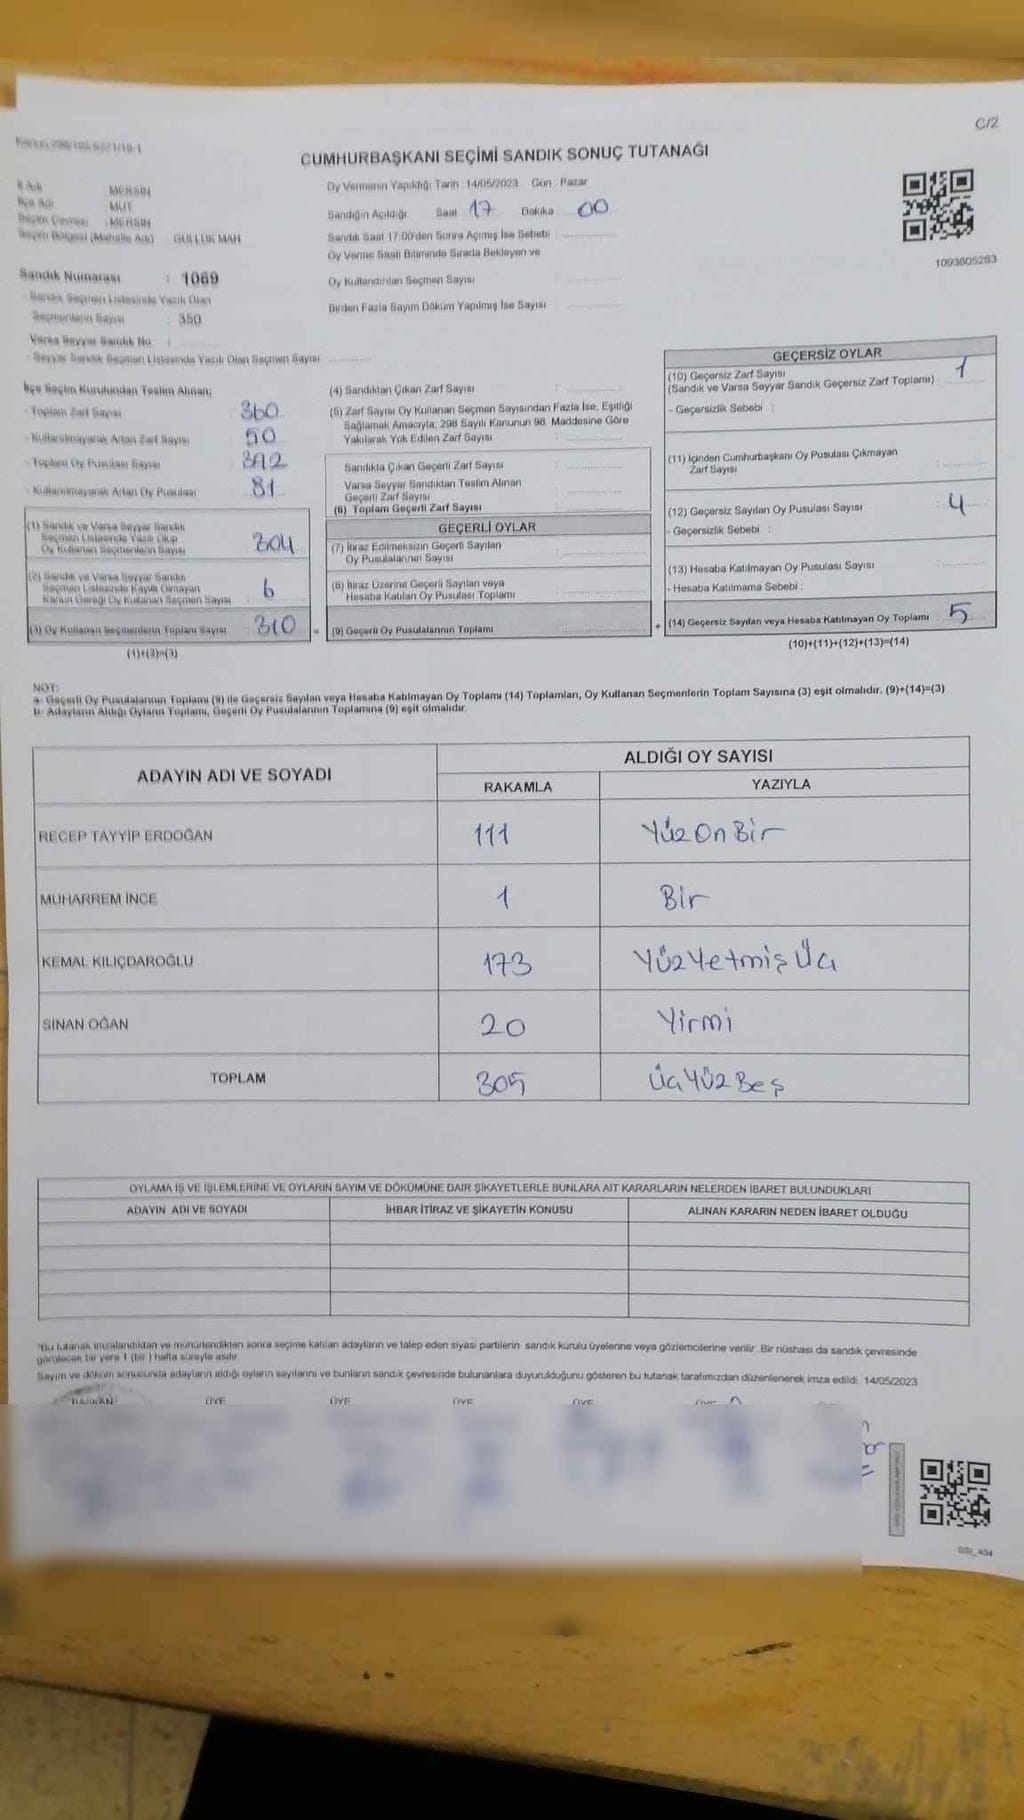 C/2
CUMHURBAŞKANI SEÇİMİ SANDIK SONUÇ TUTANAĞI
İl Adı MERSİN
İlçe Adı MUT
Seçim Çevresi : MERSİN
Seçim Bölgesi (Mahalle Adı) GÜLLÜK MAH
Sandık Numarası : 1069
- Sandık Seçmen Listesinde Yazılı Olan
Seçmenlerin Sayısı : 350
Varsa Seyyar Sandık No
- Seyyar Sandık Seçmen Listesinde Yazılı Olan Seçmen Sayısı
Oy Vermenin Yapıldığı Tarih : 14/05/2023 Gün : Pazar
Sandığın Açıldığı Saat 17 Dakika 00
Sandık Saat 17:00'den Sonra Açmış İse Sebebi :
Oy Verme Saati Bitiminde Sırada Bekleyen ve
Oy Kullandırılan Seçmen Sayısı
Birden Fazla Sayım Döküm Yapılmış İse Sayısı
1093805283
İlçe Seçim Kurulundan Teslim Alınan;
- Toplam Zarf Sayısı 360
- Kullanılmayarak Artan Zarf Sayısı 50
- Toplam Oy Pusulası Sayısı 392
- Kullanılmayarak Artan Oy Pusulası 81
(1) Sandık ve Varsa Seyyar Sandık
Seçmen Listesinde Yazılı Olup
Oy Kullanan Seçmenlerin Sayısı 304
(2) Sandık ve Varsa Seyyar Sandık
Seçmen Listesinde Kayıtlı Olmayan
Kanun Gereği Oy Kullanan Seçmen Sayısı 6
(3) Oy Kullanan Seçmenlerin Toplam Sayısı 310
(1)+(2)=(3)
(4) Sandıktan Çıkan Zarf Sayısı :
(5) Zarf Sayısı Oy Kullanan Seçmen Sayısından Fazla İse, Eşitliği
Sağlamak Amacıyla, 298 Sayılı Kanunun 98. Maddesine Göre
Yakılarak Yok Edilen Zarf Sayısı :
Sandıkta Çıkan Geçerli Zarf Sayısı :
Varsa Seyyar Sandıktan Teslim Alınan
Geçerli Zarf Sayısı :
(6) Toplam Geçerli Zarf Sayısı :
GEÇERLİ OYLAR
(7) İtiraz Edilmeksizin Geçerli Sayılan
Oy Pusulalarının Sayısı :
(8) İtiraz Üzerine Geçerli Sayılan veya
Hesaba Katılan Oy Pusulası Toplamı :
= (9) Geçerli Oy Pusulalarının Toplamı +
GEÇERSİZ OYLAR
(10) Geçersiz Zarf Sayısı 1
(Sandık ve Varsa Seyyar Sandık Geçersiz Zarf Toplamı)
- Geçersizlik Sebebi :
(11) İçinden Cumhurbaşkanı Oy Pusulası Çıkmayan
Zarf Sayısı :
(12) Geçersiz Sayılan Oy Pusulası Sayısı : 4
- Geçersizlik Sebebi :
(13) Hesaba Katılmayan Oy Pusulası Sayısı :
- Hesaba Katılmama Sebebi :
(14) Geçersiz Sayılan veya Hesaba Katılmayan Oy Toplamı 5
(10)+(11)+(12)+(13)=(14)
NOT:
a- Geçerli Oy Pusulalarının Toplamı (9) ile Geçersiz Sayılan veya Hesaba Katılmayan Oy Toplamı (14) Toplamları, Oy Kullanan Seçmenlerin Toplam Sayısına (3) eşit olmalıdır. (9)+(14)=(3)
b- Adayların Aldığı Oyların Toplamı, Geçerli Oy Pusulalarının Toplamına (9) eşit olmalıdır.
ADAYIN ADI VE SOYADI ALDIĞI OY SAYISI
RAKAMLA YAZIYLA
RECEP TAYYİP ERDOĞAN 111 Yüz On Bir
MUHARREM İNCE 1 Bir
KEMAL KILIÇDAROĞLU 173 Yüz Yetmiş Üç
SİNAN OĞAN 20 Yirmi
TOPLAM 305 Üç Yüz Beş
OYLAMA İŞ VE İŞLEMLERİNE VE OYLARIN SAYIM VE DÖKÜMÜNE DAİR ŞİKAYETLERLE BUNLARA AİT KARARLARIN NELERDEN İBARET BULUNDUKLARI
ADAYIN ADI VE SOYADI İHBAR İTİRAZ VE ŞİKAYETİN KONUSU ALINAN KARARIN NEDEN İBARET OLDUĞU
*Bu tutanak imzalandıktan ve mühürlendikten sonra seçime katılan adayların ve talep eden siyasi partilerin sandık kurulu üyelerine veya gözlemcilerine verilir. Bir nüshası da sandık çevresinde
görülecek bir yere 1 (bir) hafta süreyle asılır.
Sayım ve döküm sonucunda adayların aldığı oyların sayılarını ve bunların sandık çevresinde bulunanlara duyurulduğunu gösteren bu tutanak tarafımızdan düzenlenerek imza edildi. 14/05/2023
BAŞKAN ÜYE ÜYE ÜYE ÜYE ÜYE